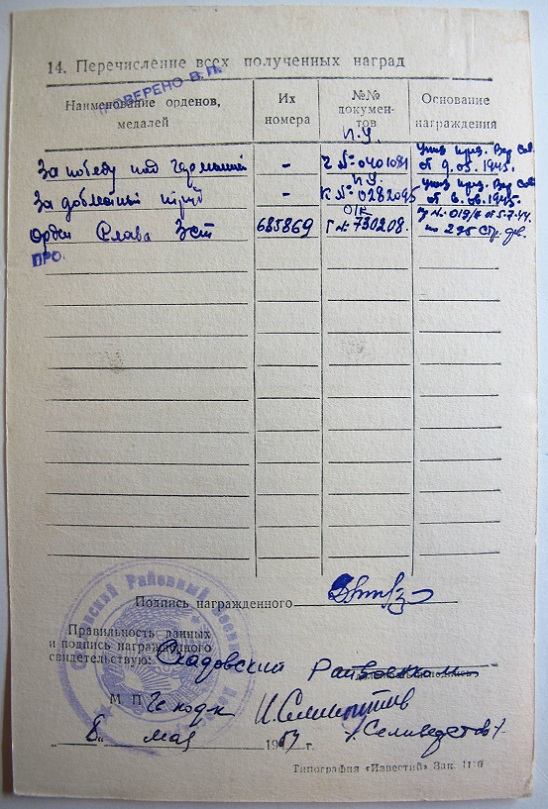 14. Перечисление всех полученных наград
ПРОВЕРЕНО В. П.
Наименование орденов, медалей
Их номера
№№ документов
Основание награждения
За победу над Германией - П.У. Ч № 0401081 указ през. Вер Сов. от 9.05.1945.
За доблестный труд - П.У. К № 0282095 указ през. Вер Сов. от 6.06.1945
орден Слава 3 ст 685869 Г № 730208. от 5-7-44. по 295 стр. див.
ПРО.
Подпись награжденного
Правильность данных
и подпись награжденного
свидетельствую: Скадовский Райвоенком
М П
8 мая 19 г.
Типография «Известий» Зак.